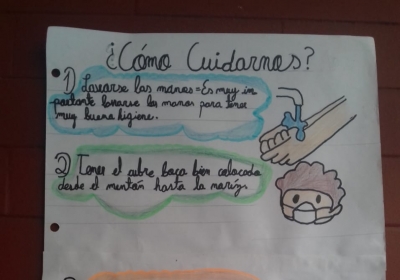 ¿Cómo Cuidarnos?
1) Lavarse las manos=Es muy im
portante lavarse las manos para tener
muy buena higiene.
2) Tener el cubre boca bien colocada
desde el mentón hasta la naríz.